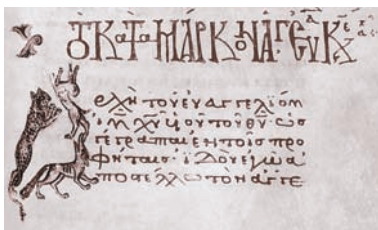 ΤὸΚΑΤΑΜΑΡΚΟΝΑΓ ΕΥ
ρχὴ τοῦ εὐαγγελίου
ἰῦ χῦ υἱοῦ τοῦ θῦ· ὡς
γέγραπται ἐν τοῖς προ
φήταις· ἰδοὺ ἐγὼ ἀ
ποστέλλω τὸν ἄγγε